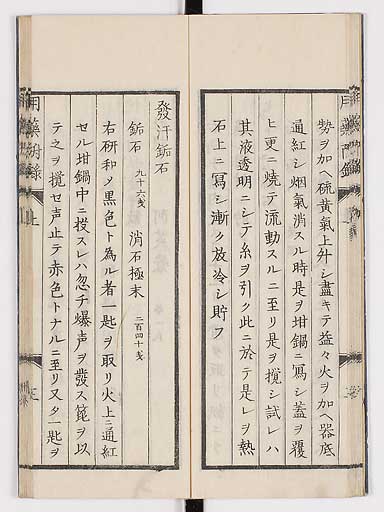 勢ヲ加ヘ硫黄氣上升シ盡キテ益々火ヲ加ヘ器底
通紅シ烟氣消スル時是ヲ坩鍋ニ寫シ蓋ヲ覆
ヒ更ニ焼テ流動スルニ至リ是ヲ攪シ試レハ
其液透明ニシテ糸ヲ引ク此ニ於テ是レヲ熱
石上ニ寫シ漸ク放冷シ貯フ
發汗鉐石
鉐石 九十六戔 消石極末 二百四十戔
右研和メ黒色ト為ル者一匙ヲ取リ火上ニ通紅
セル坩鍋中ニ投スレハ忽チ爆声ヲ發ス箆ヲ以
テ之ヲ攪セ声止テ赤色トナルニ至リ又タ一匙ヲ